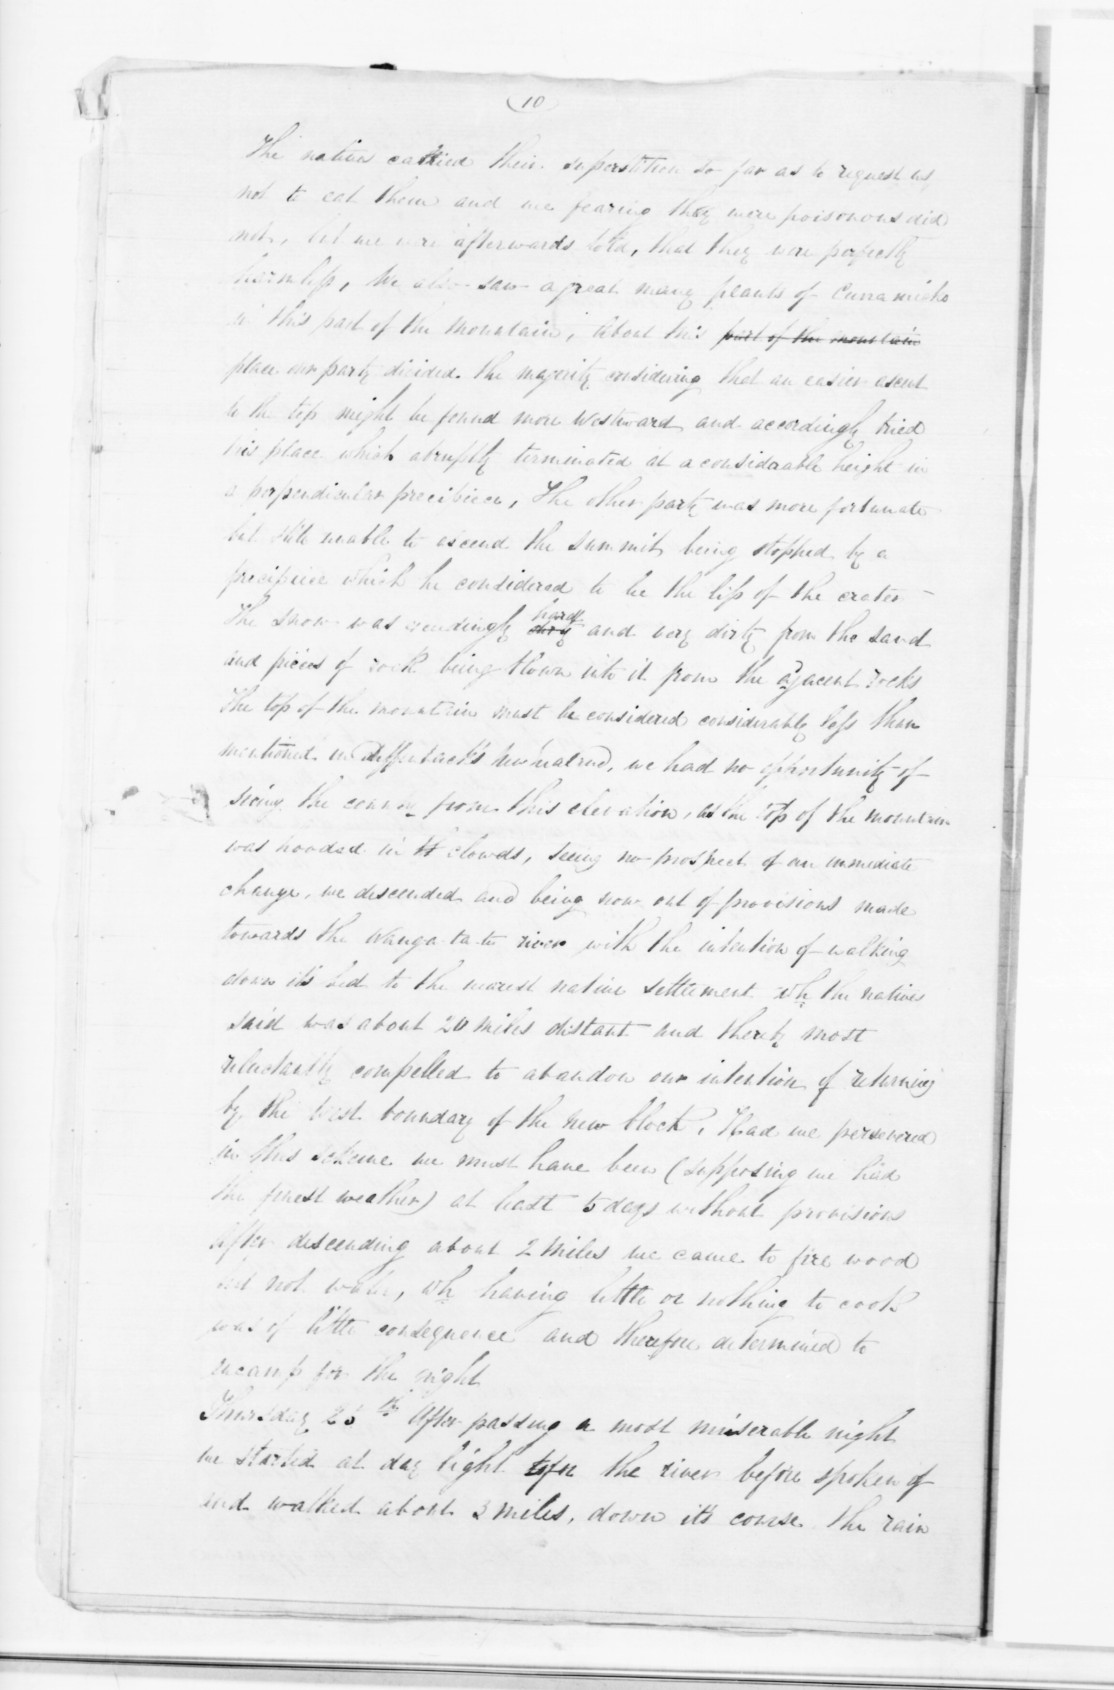 10
The natives carried their superstition so far as to request us
not to eat them and we fearing they were poisonous did
not, but we were afterwards told, that they were perfectly
harmless, We also saw a great many plants of
in this part of the mountain, About this part of the mountain
place our party divided. the majority considering that an easier ascent
to the top might be found more Westward and accordingly tried
this place which abruptly terminated at a considerable height in
a perpendicular precibice, The other party was more fortunate
but still unable to ascend the summit being stopped by a
precipice which he considered to be the lip of the crater
The snow was exceedingly dirty hard and very dirty from the sand
and pieces of rock being blown into it from the ajacent rocks
The top of the mountain must be considered considerably less than
mentioned in Dieffenback's New Zealand, we had no opportunity of
seeing the country from this elevation, as the top of the mountain
was hooded in the clowds, seeing no prospect of an immediate
change, we descended and being now out of provisions made
towards the Wanga-ta-te river with the intention of walking
down it's bed to the nearest native settlement wh the natives
said was about 20 miles distant and thereby most
reluctantly compelled to abandon our intention of returning
by the West boundary of the New block, Had we persevered
in this scheme we must have been (supposing we had
the finest weather) at least 5 days without provisions
After descending about 2 miles we came to fire wood
but not water, wh having little or nothing to cook
was of little consequence and therefore determined to
encamp for the night
Thursday 25th After passing a most miserable night
we started at day light for the river before spoken of
and walked about 3 miles, down it's course the rain